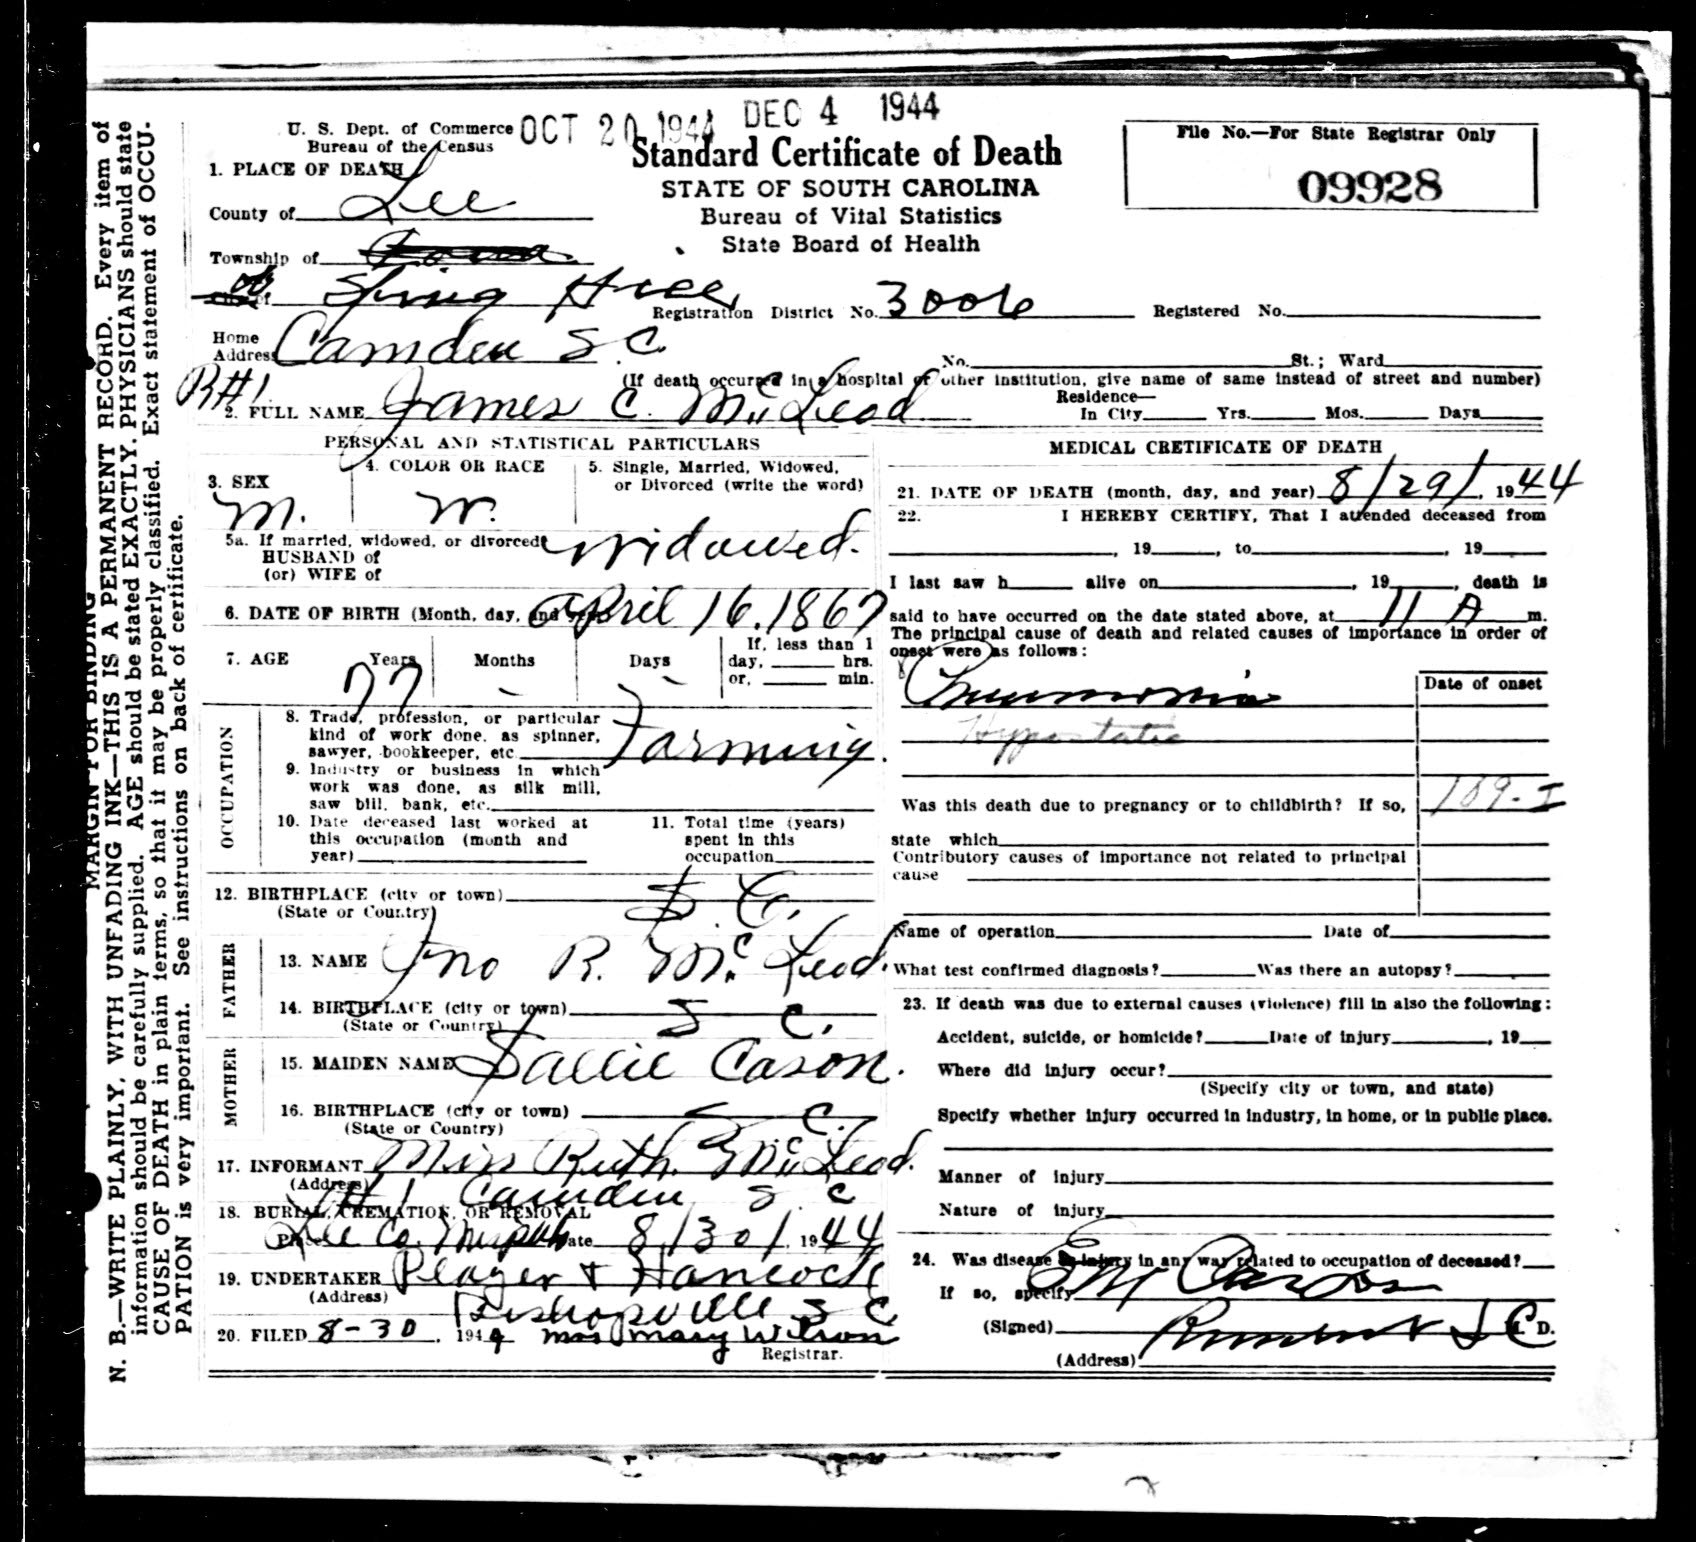 OCT 20 1944
DEC 4 1944
U. S. Dept. of Commerce
Bureau of the Census
Standard Certificate of Death
STATE OF SOUTH CAROLINA
Bureau of Vital Statistics
State Board of Health
File No.—For State Registrar Only
09928
1. PLACE OF DEATH
County of Lee
Township of
Spring Hill
Registration District No. 3006 Registered No.
Home Address Camden S. C.
R#1.
No. St.; Ward
(If death occurred in a hospital or other institution, give name of same instead of street and number)
2. FULL NAME James C. McLeod
Residence—
In City Yrs. Mos. Days
PERSONAL AND STATISTICAL PARTICULARS
3. SEX
M.
4. COLOR OR RACE
W.
5. Single, Married, Widowed,
or Divorced (write the word)
widowed.
5a. If married, widowed, or divorced
HUSBAND of
(or) WIFE of
6. DATE OF BIRTH (Month, day, and year) April 16. 1867
7. AGE Years Months Days
77 - -
If, less than 1
day, hrs.
or, min.
OCCUPATION
8. Trade, profession, or particular
kind of work done, as spinner,
sawyer, bookkeeper, etc. Farming.
9. Industry or business in which
work was done, as silk mill,
saw bill, bank, etc.
10. Date deceased last worked at
this occupation (month and
year)
11. Total time (years)
spent in this
occupation
12. BIRTHPLACE (city or town) S. C.
(State or Country)
FATHER
13. NAME Jno R. McLeod.
14. BIRTHPLACE (city or town) S C.
(State or Country)
MOTHER
15. MAIDEN NAME Sallie Cason.
16. BIRTHPLACE (city or town) S C.
(State or Country)
17. INFORMANT Miss Ruth McLeod.
(Address) R#1 Camden S C
18. BURIAL, CREMATION, OR REMOVAL
Place Lee Co. Mizpah Date 8/30/ 1944
19. UNDERTAKER Plazer & Hancock
(Address) Bishopville S C.
20. FILED 8-30, 1944 Mrs Mary Wilson
Registrar.
MEDICAL CRETIFICATE OF DEATH
21. DATE OF DEATH (month, day, and year) 8/29/, 1944
22. I HEREBY CERTIFY, That I attended deceased from
, 19 , to , 19
I last saw h alive on , 19 , death is
said to have occurred on the date stated above, at 11 A m.
The principal cause of death and related causes of importance in order of
onset were as follows:
Date of onset
Pneumonia
Hypostatic
109-I
Was this death due to pregnancy or to childbirth? If so,
state which
Contributory causes of importance not related to principal
cause
Name of operation Date of
What test confirmed diagnosis? Was there an autopsy?
23. If death was due to external causes (violence) fill in also the following:
Accident, suicide, or homicide? Date of injury , 19
Where did injury occur?
(Specify city or town, and state)
Specify whether injury occurred in industry, in home, or in public place.
Manner of injury
Nature of injury
24. Was disease or injury in any way related to occupation of deceased?
If so, specify
(Signed) D.
(Address) S C
MARGIN FOR BINDING
N. B.—WRITE PLAINLY, WITH UNFADING INK—THIS IS A PERMANENT RECORD. Every item of
information should be carefully supplied. AGE should be stated EXACTLY. PHYSICIANS should state
CAUSE OF DEATH in plain terms, so that it may be properly classified. Exact statement of OCCU-
PATION is very important. See instructions on back of certificate.